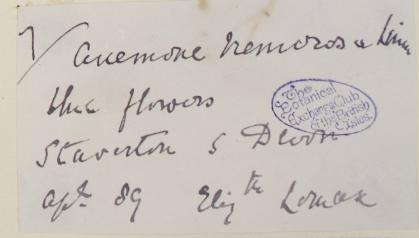 Anemone nemorosa Linn
blue flowers
Staverton S Devon
Apl. 89 Elizth Lomax
The
Botanical
Exchange Club
of the British
Isles.